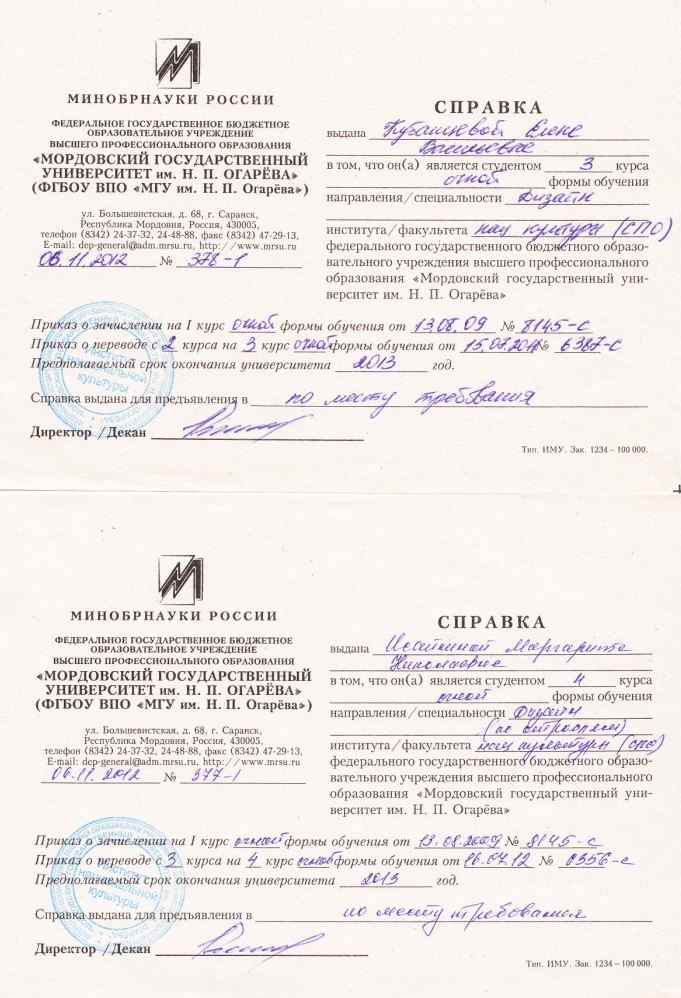 МИНОБРНАУКИ РОССИИ
ФЕДЕРАЛЬНОЕ ГОСУДАРСТВЕННОЕ БЮДЖЕТНОЕ
ОБРАЗОВАТЕЛЬНОЕ УЧРЕЖДЕНИЕ
ВЫСШЕГО ПРОФЕССИОНАЛЬНОГО ОБРАЗОВАНИЯ
«МОРДОВСКИЙ ГОСУДАРСТВЕННЫЙ
УНИВЕРСИТЕТ им. Н. П. ОГАРЁВА»
(ФГБОУ ВПО «МГУ им. Н. П. Огарёва»)
ул. Большевистская, д. 68, г. Саранск,
Республика Мордовия, Россия, 430005,
телефон (8342) 24-37-32, 24-48-88, факс (8342) 47-29-13,
E-mail: dep-general@adm.mrsu.ru, http://www.mrsu.ru
06.11.2012 № 378-1
СПРАВКА
выдана Елене
Васильевне
в том, что он(а) является студентом 3 курса
очной формы обучения
направления/специальности Дизайн
института/факультета нац культуры (СПО)
федерального государственного бюджетного образо-
вательного учреждения высшего профессионального
образования «Мордовский государственный уни-
верситет им. Н. П. Огарёва»
Приказ о зачислении на I курс очной формы обучения от 13.08.09 № 8145-с
Приказ о переводе с 2 курса на 3 курс очной формы обучения от 15.07.2011 № 6387-с
Предполагаемый срок окончания университета 2013 год.
Справка выдана для предъявления в по месту требования
Директор /Декан
Институт национальной культуры
Тип. ИМУ. Зак. 1234—100 000.
МИНОБРНАУКИ РОССИИ
ФЕДЕРАЛЬНОЕ ГОСУДАРСТВЕННОЕ БЮДЖЕТНОЕ
ОБРАЗОВАТЕЛЬНОЕ УЧРЕЖДЕНИЕ
ВЫСШЕГО ПРОФЕССИОНАЛЬНОГО ОБРАЗОВАНИЯ
«МОРДОВСКИЙ ГОСУДАРСТВЕННЫЙ
УНИВЕРСИТЕТ им. Н. П. ОГАРЁВА»
(ФГБОУ ВПО «МГУ им. Н. П. Огарёва»)
ул. Большевистская, д. 68, г. Саранск,
Республика Мордовия, Россия, 430005,
телефон (8342) 24-37-32, 24-48-88, факс (8342) 47-29-13,
E-mail: dep-general@adm.mrsu.ru, http://www.mrsu.ru
06.11.2012 № 377-1
СПРАВКА
выдана Исайкиной Маргарите
Николаевне
в том, что он(а) является студентом 4 курса
очной формы обучения
направления/специальности Дизайн
(по отраслям)
института/факультета нац культуры (СПО)
федерального государственного бюджетного образо-
вательного учреждения высшего профессионального
образования «Мордовский государственный уни-
верситет им. Н. П. Огарёва»
Приказ о зачислении на I курс очной формы обучения от 13.08.2009 № 8145-с
Приказ о переводе с 3 курса на 4 курс очной формы обучения от 16.07.12 № 6356-с
Предполагаемый срок окончания университета 2013 год.
Справка выдана для предъявления в по месту требования
Директор /Декан
Институт национальной культуры
Тип. ИМУ. Зак. 1234—100 000.